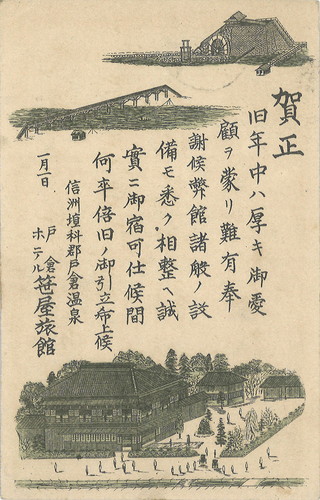 賀正
旧年中ハ厚キ御愛
顧ヲ蒙リ難有奉
謝候弊館諸般ノ設
備モ悉ク相整ヘ誠
實ニ御宿可仕候間
何卒倍旧ノ御引立希上候
一月一日
信洲埴科郡戸倉温泉
戸倉
ホテル
笹屋旅館